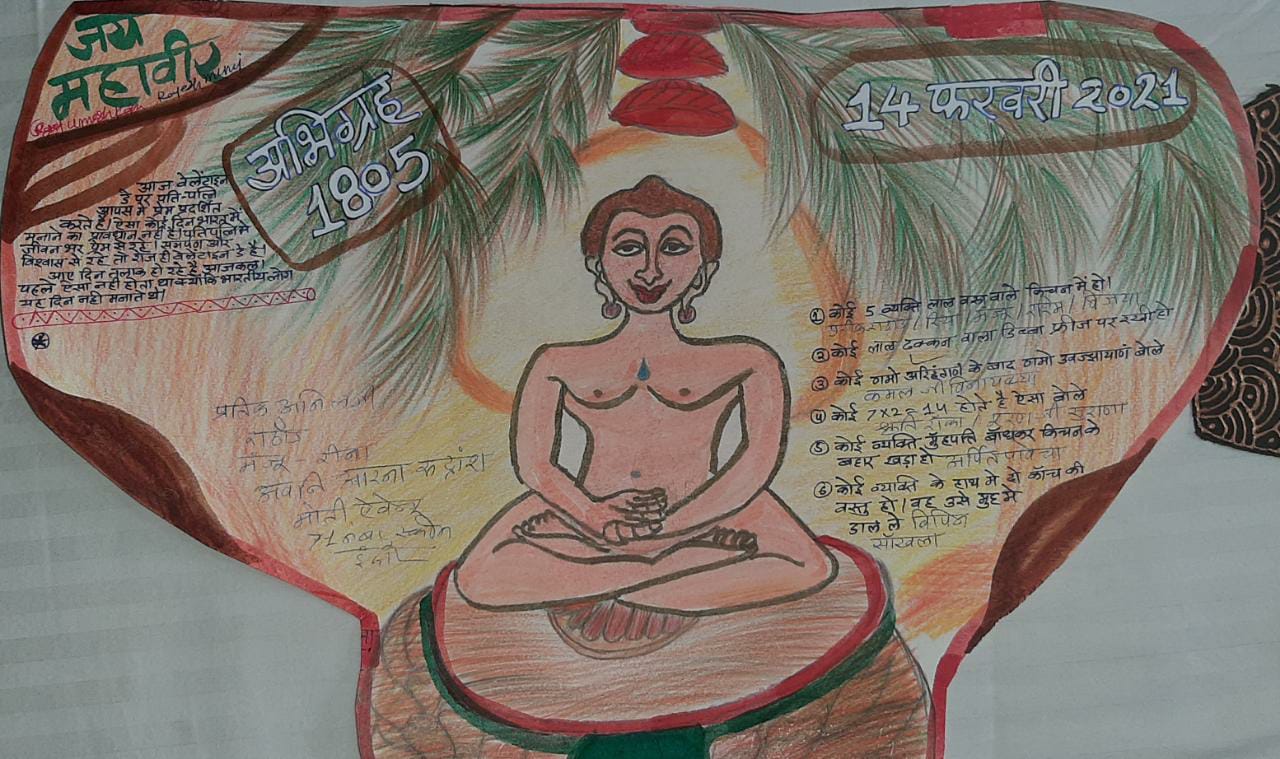 जय
महावीर
अभिग्रह
1805
14 फरवरी 2021
आज वेलेंटाइन
डे पर पति-पत्नि
आपस में प्रेम प्रदर्शित
करते हैं ऐसा कोई दिन भारत में
मनाने की आवश्यकता नहीं है। पति पत्नि में
जीवन भर प्रेम से रहे। समर्पण और
विश्वास से रहे तो रोज ही वेलेंटाइन डे है।
आए दिन तलाक हो रहे है आजकल।
पहले ऐसा नही होता था क्योंकि भारतीय लोग
यह दिन नही मनाते थे।
① कोई 5 व्यक्ति लाल वस्त्र वाले किचन में हो।
② कोई लाल ढक्कन वाला डिब्बा फ्रीज पर रखी हो
③ कोई णमो अरिहंताणं के बाद णमो उवज्झायाणं बोले
कमल जी विनायक्या
④ कोई 7x2=14 होते है ऐसा बोले
⑤ कोई व्यक्ति मुँहपत्ति बाँधकर किचन के
बहार खड़ा हो
⑥ कोई व्यक्ति के हाथ में हो काँच की
वस्तु हो। वह उसे मुह मे
डाल ले विपिन
साँखला
प्रतिक अनिलजी
राठौर
मंजू - रीना
अवनि सारना
71 नंबर स्कीम
इंदौर